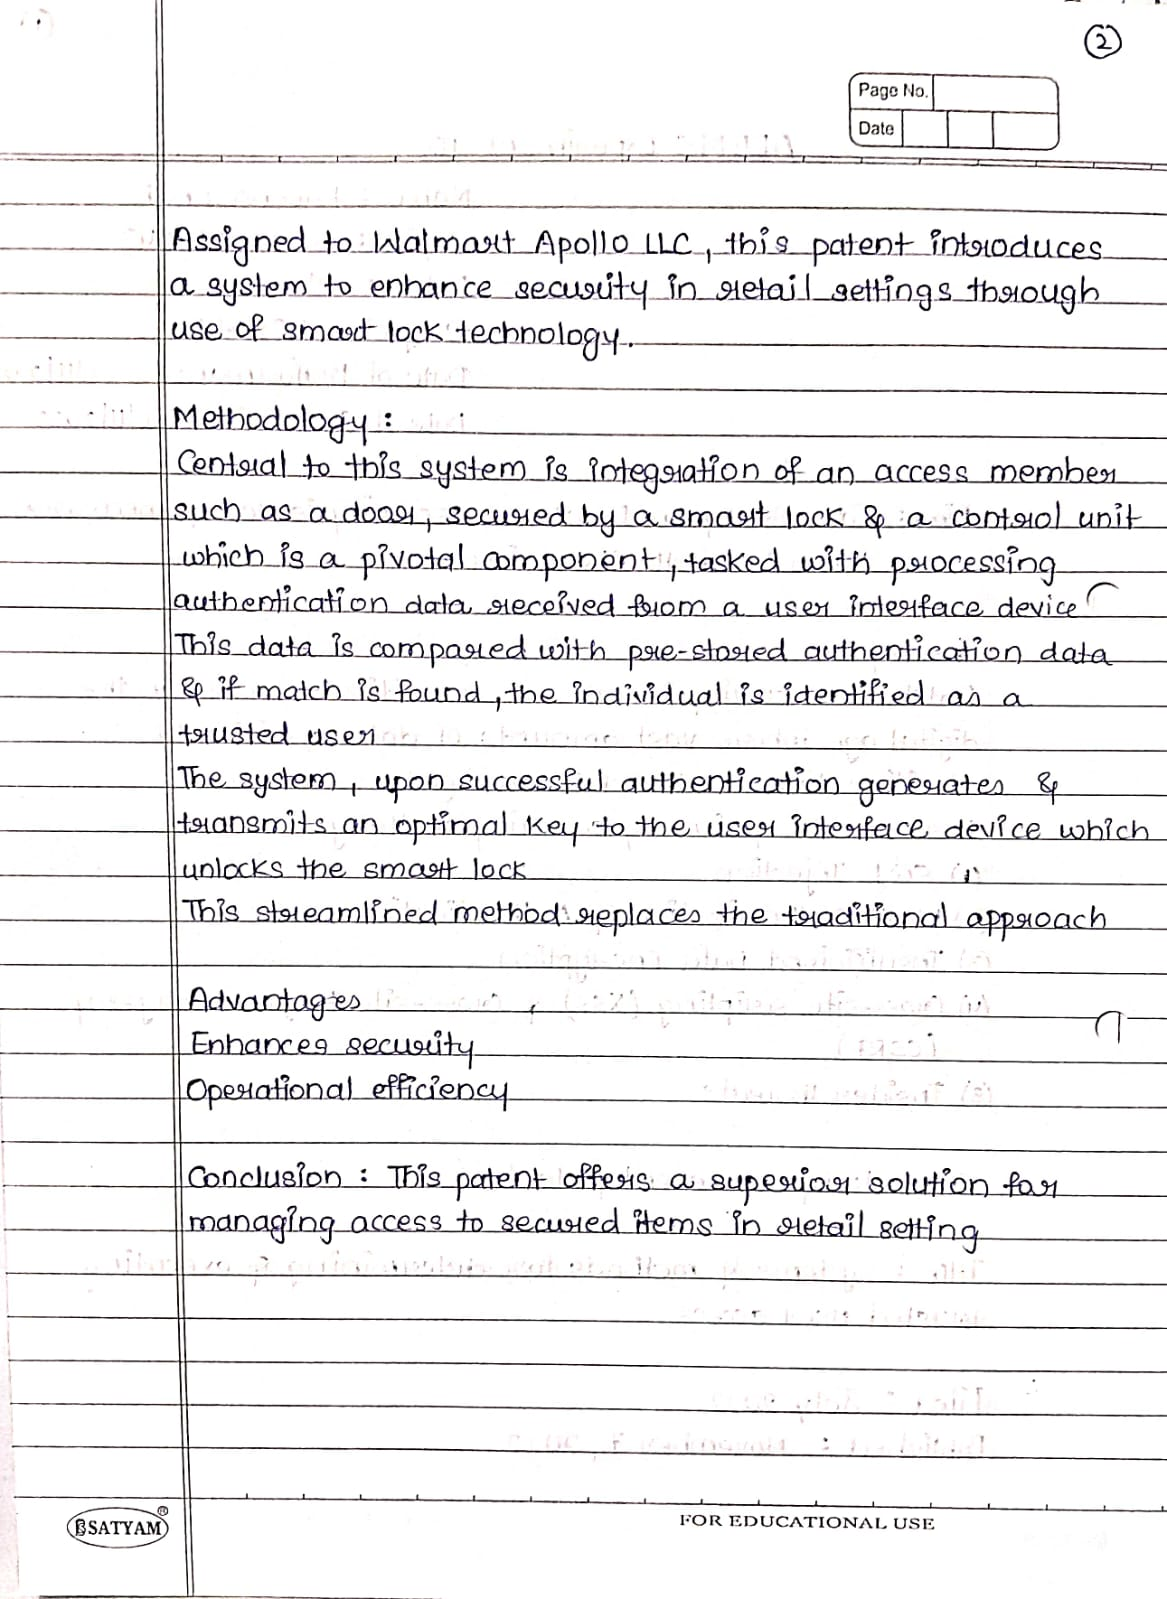 2
Page No.
Date
Assigned to Walmart Apollo LLC, this patent introduces
a system to enhance security in retail settings through
use of smart lock technology.
Methodology :
Central to this system is integration of an access member
such as a door, secured by a smart lock & a control unit
which is a pivotal component, tasked with processing
authentication data received from a user interface device
This data is compared with pre-stored authentication data
& if match is found, the individual is identified as a
trusted user
The system, upon successful authentication generates &
transmits an optimal key to the user interface device which
unlocks the smart lock
This streamlined method replaces the traditional approach
Advantages
Enhances security
Operational efficiency
Conclusion : This patent offers a superior solution for
managing access to secured items in retail setting
SATYAM
FOR EDUCATIONAL USE